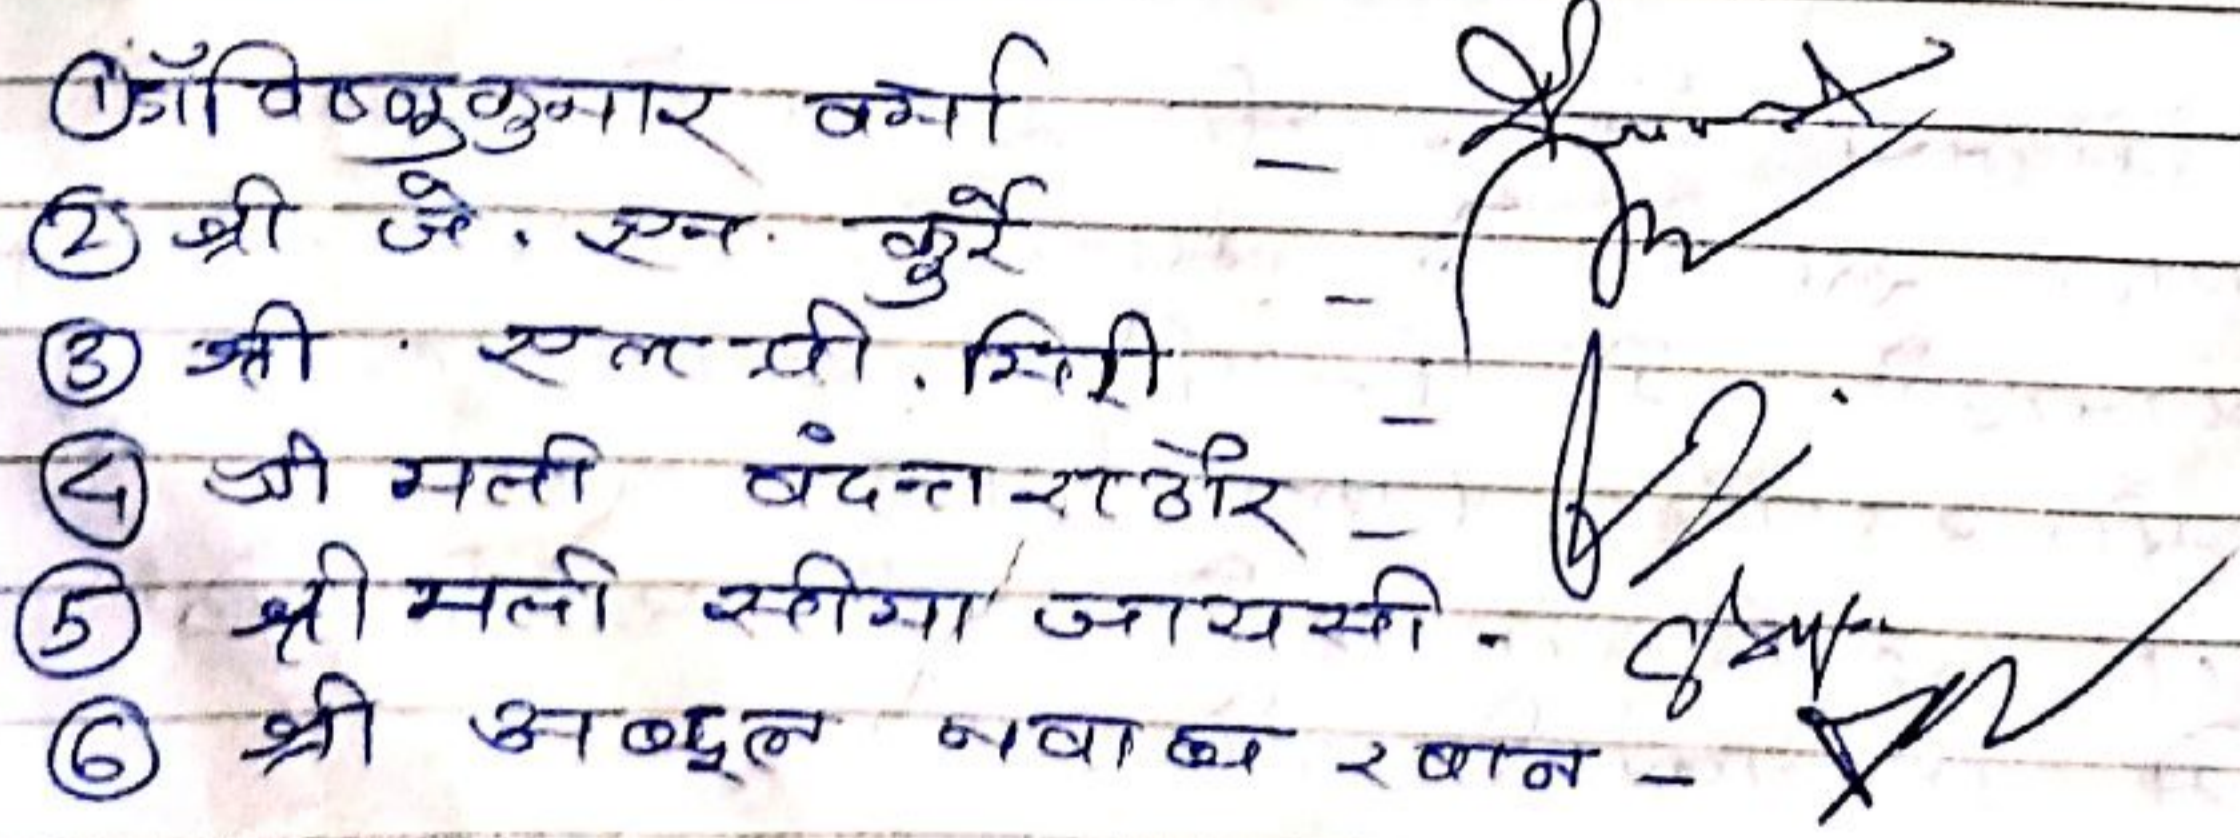 ① डॉ विष्णु कुमार वर्मा -
② श्री जे. एन. कुर्रे -
③ श्री एल पी. गिरी -
④ श्री मती वंदना राठौर -
⑤ श्री मती सीमा जायसी -
⑥ श्री अब्दुल नवाब खान -